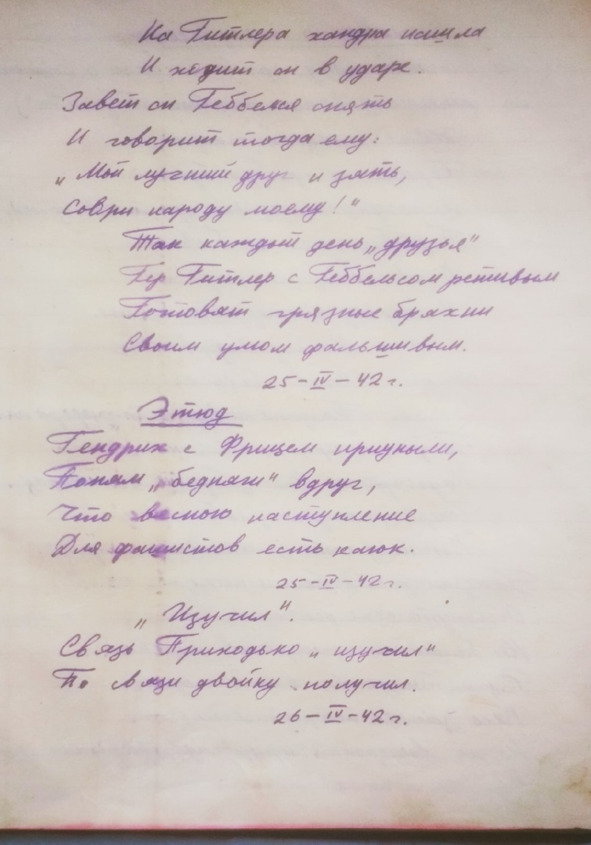 На Гитлера хандра нашла
И ходит он в ударе.
Завет он Геббельса опять
И говорит тогда ему:
„Мой лучший друг и зять,
Соври народу моему!"
Так каждый день „друзья"
Гер Гитлер с Геббельсом ретивым
Готовят грязные брехни
Своим умом фальшивым.
25-IV-42 г.
Этюд
Гендрих с Фрицем приуныли,
Понял „бедняги" вдруг,
Что весною наступление
Для фашистов есть каюк.
25-IV-42 г.
„Изучил".
Связь Приходько „изучил"
По связи двойку получил.
26-IV-42 г.